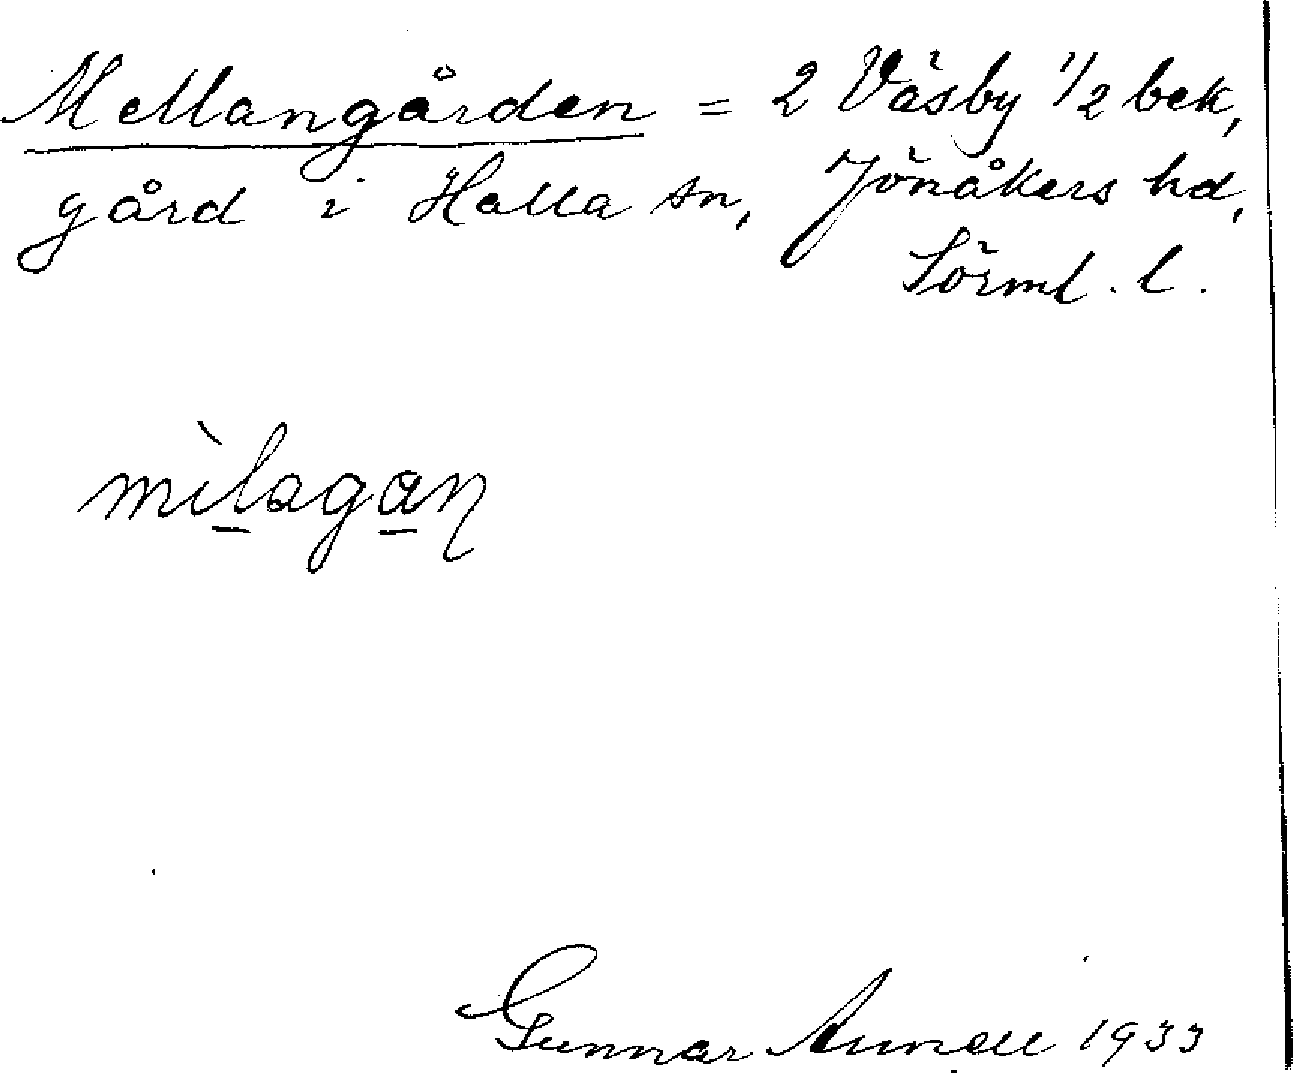 Mellangården = 2 Väsby 1/2 bek,
gård i Halla sn, Jönåkers hd,
Sörml. l.
mìlagaɳ
Gunnar Aunell 1933